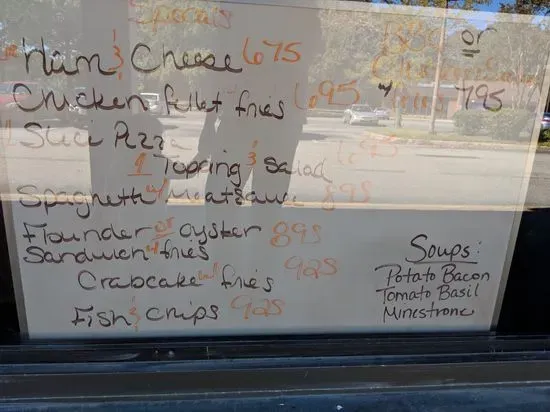 Specials
Ham & Cheese 675
Chicken fillet fries 695
1 Slice Pizza
1 Topping & Salad 695
Spaghetti w/ Meatsauce 895
Flounder or oyster 895
Sandwich & fries
Crabcake w/ fries 925
Fish & Chips 925
BBQ or
w/ fries 795
Soups:
Potato Bacon
Tomato Basil
Minestrone